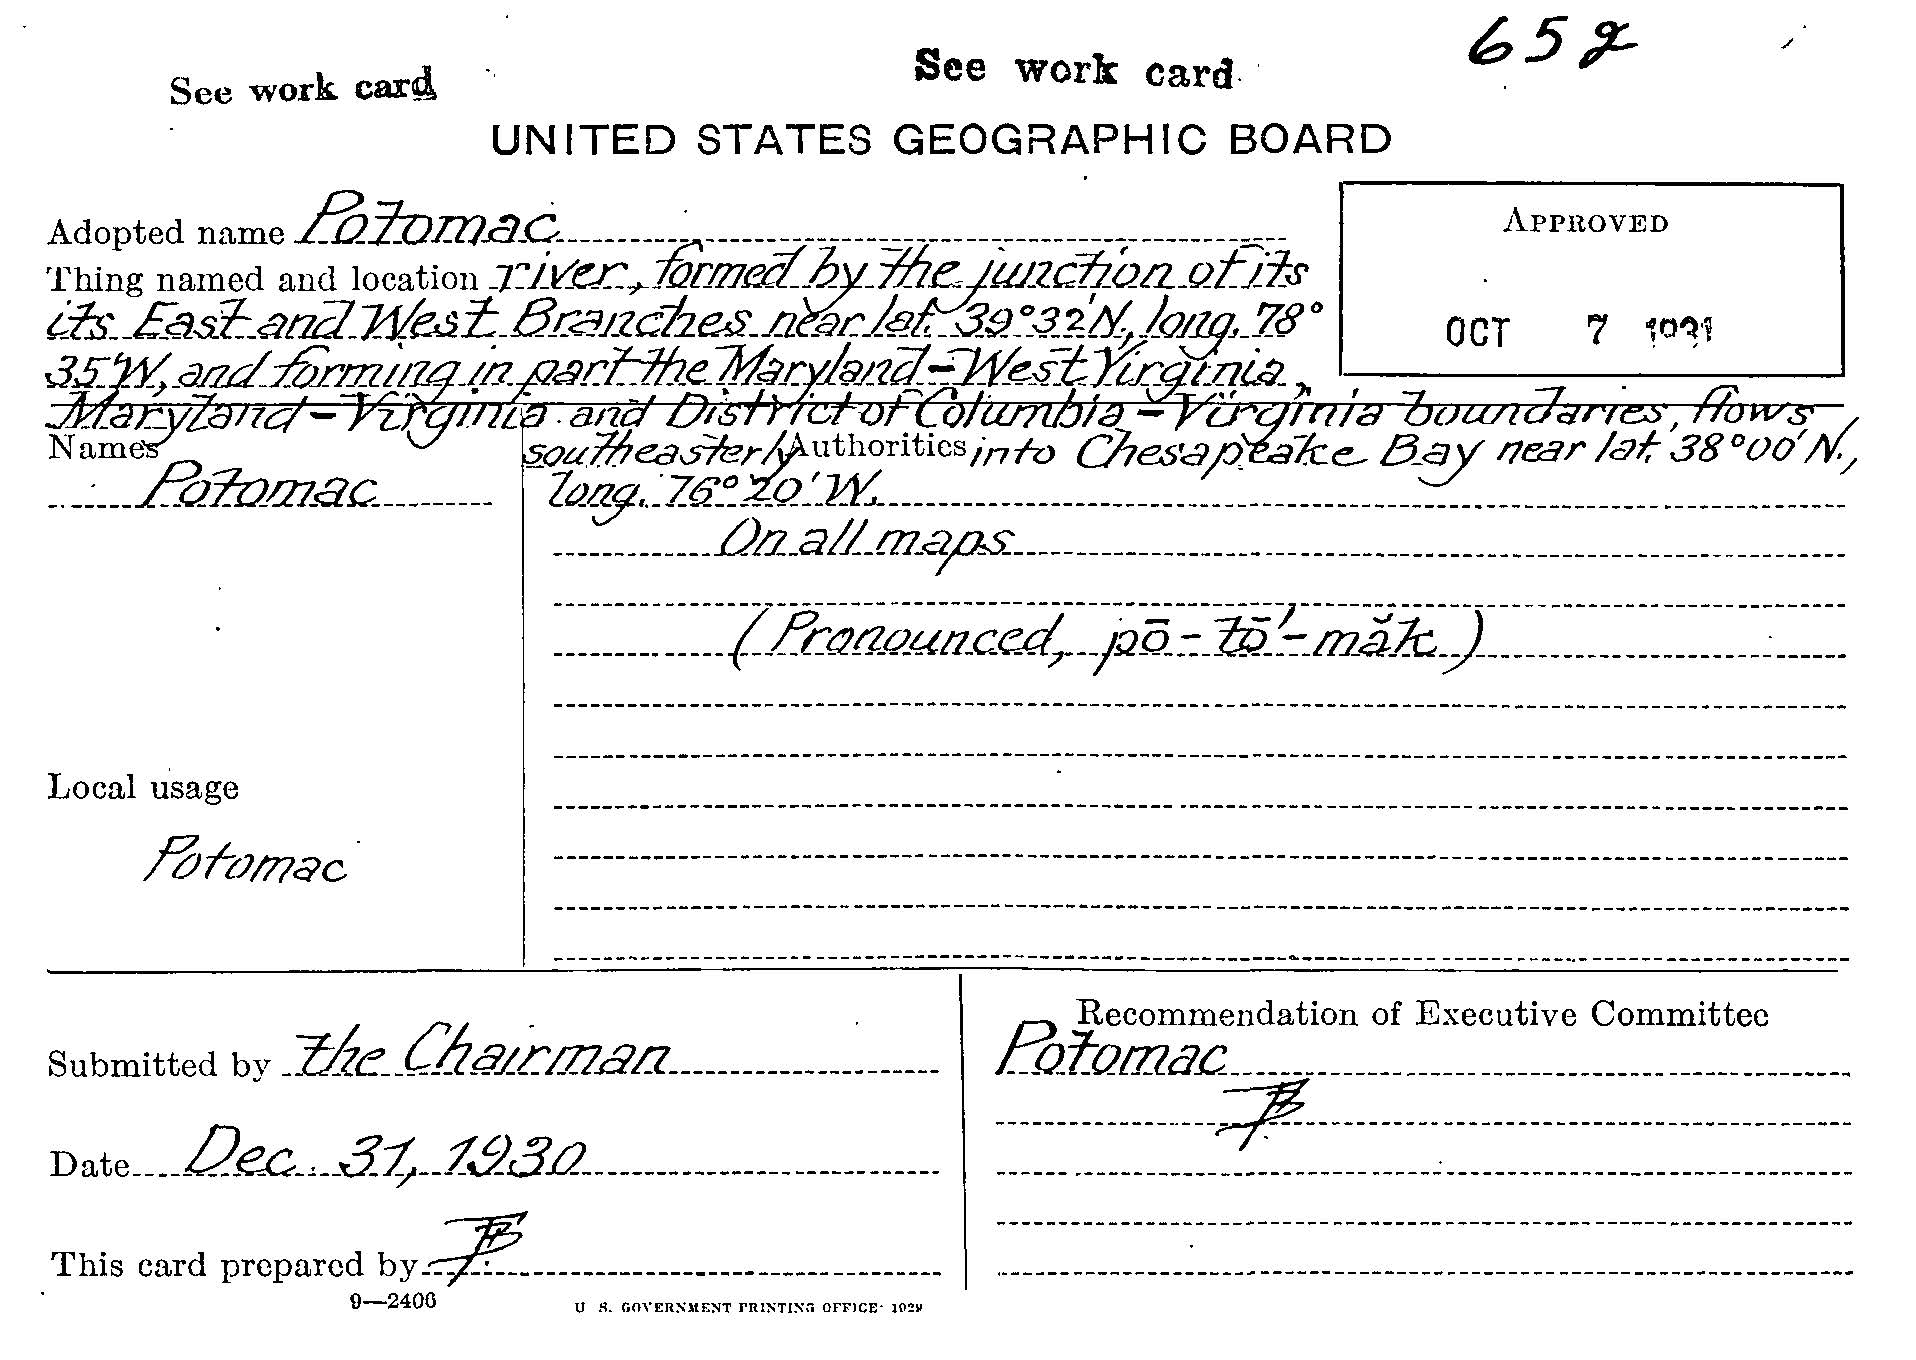 65g
See work card
See work card
UNITED STATES GEOGRAPHIC BOARD
Adopted name Potomac
Thing named and location river, formed by the junction of its
its East and West Branches near lat. 39°32'N., long. 78°
35'W, and forming in part the Maryland-West Virginia,
Maryland-Virginia and District of Columbia-Virginia boundaries, flows
southeasterly into Chesapeake Bay near lat. 38°00'N.,
long. 76°20'W.
APPROVED
OCT 7 1931
Names
Potomac
Authorities
On all maps
(Pronounced, pō-tō'-măk)
Local usage
Potomac
Submitted by the Chairman
Date Dec. 31, 1930
This card prepared by
9—2406
U. S. GOVERNMENT PRINTING OFFICE: 1929
Recommendation of Executive Committee
Potomac